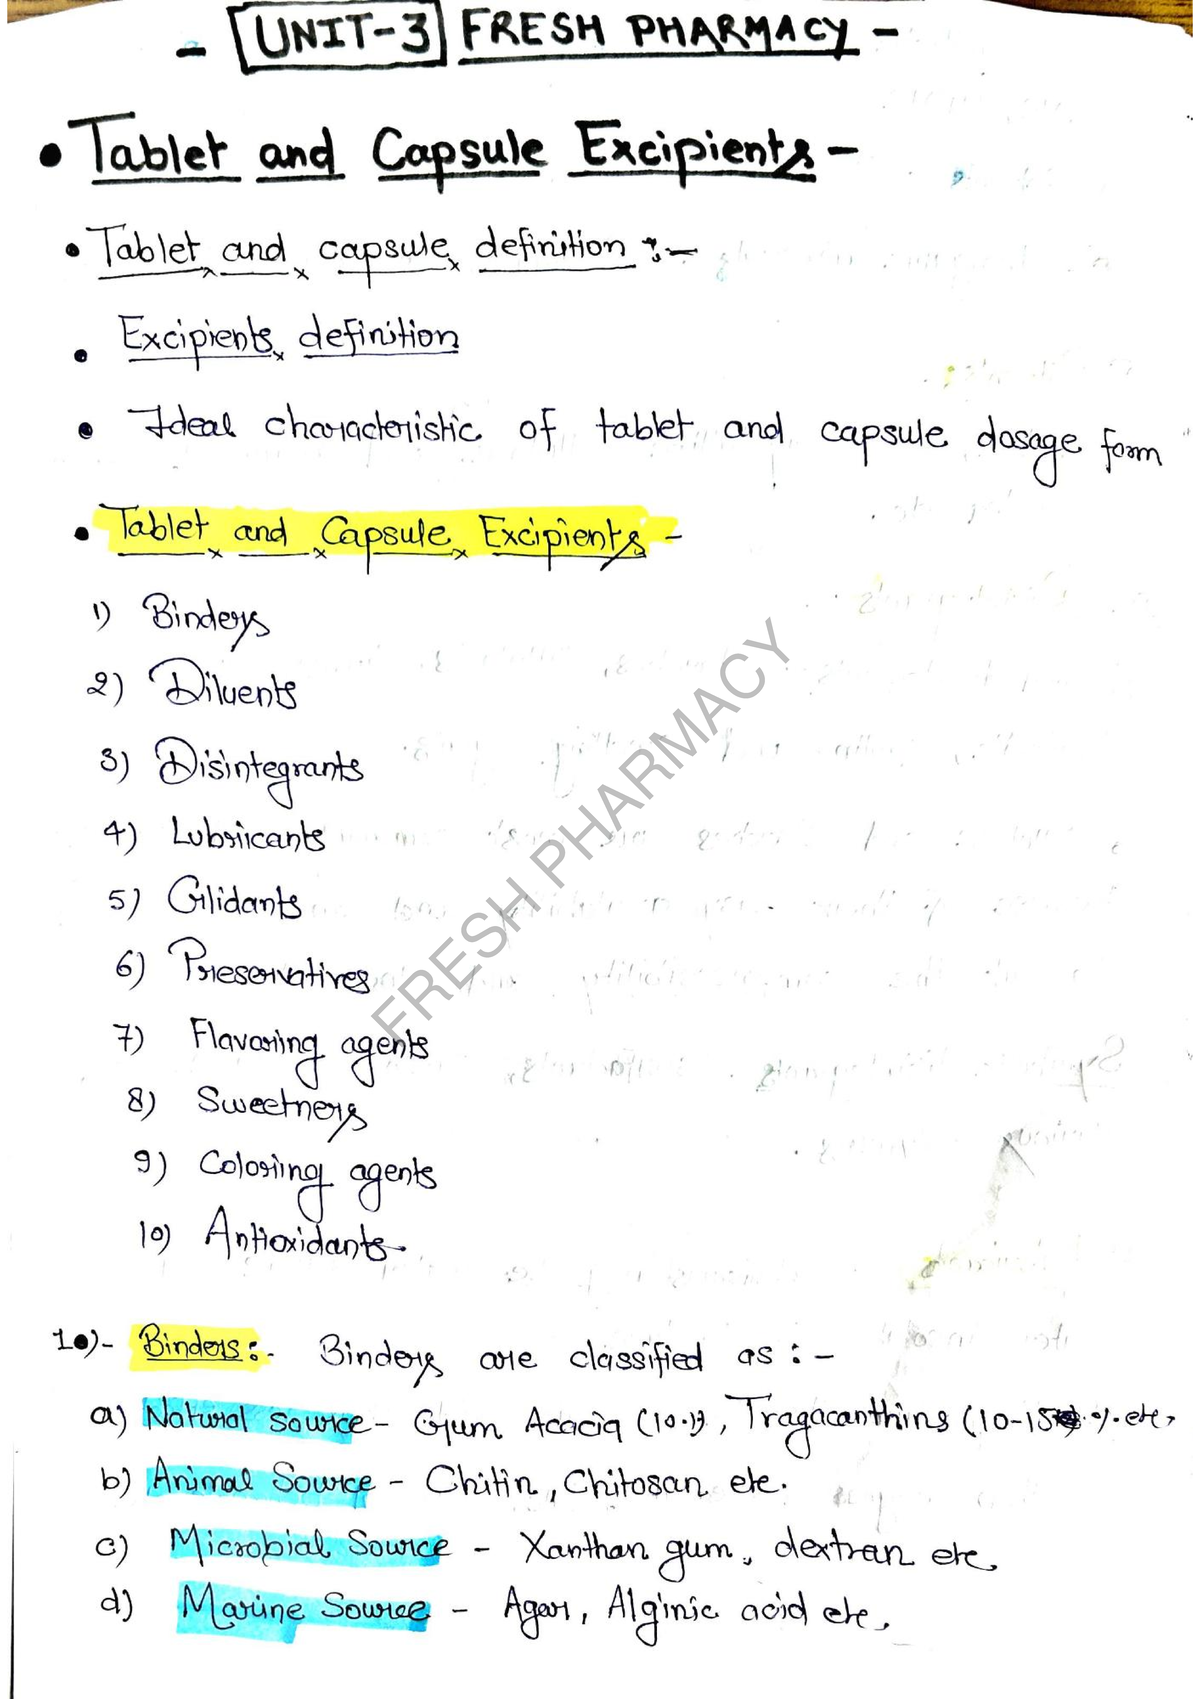 - UNIT-3 FRESH PHARMACY -
• Tablet and Capsule Excipients -
• Tablet and capsule definition :-
• Excipients definition
• Ideal characteristic of tablet and capsule dosage form
• Tablet and Capsule Excipients -
1) Binders
2) Diluents
3) Disintegrants
4) Lubricants
5) Glidants
6) Preservatives
7) Flavoring agents
8) Sweetners
9) Coloring agents
10) Antioxidants
FRESH PHARMACY
10)- Binders :- Binders are classified as :-
a) Natural source - Gum Acacia (10%), Tragacanthins (10-15 % etc,
b) Animal Source - Chitin, Chitosan etc.
c) Microbial Source - Xanthan gum, dextran etc,
d) Marine Source - Agar, Alginic acid etc,